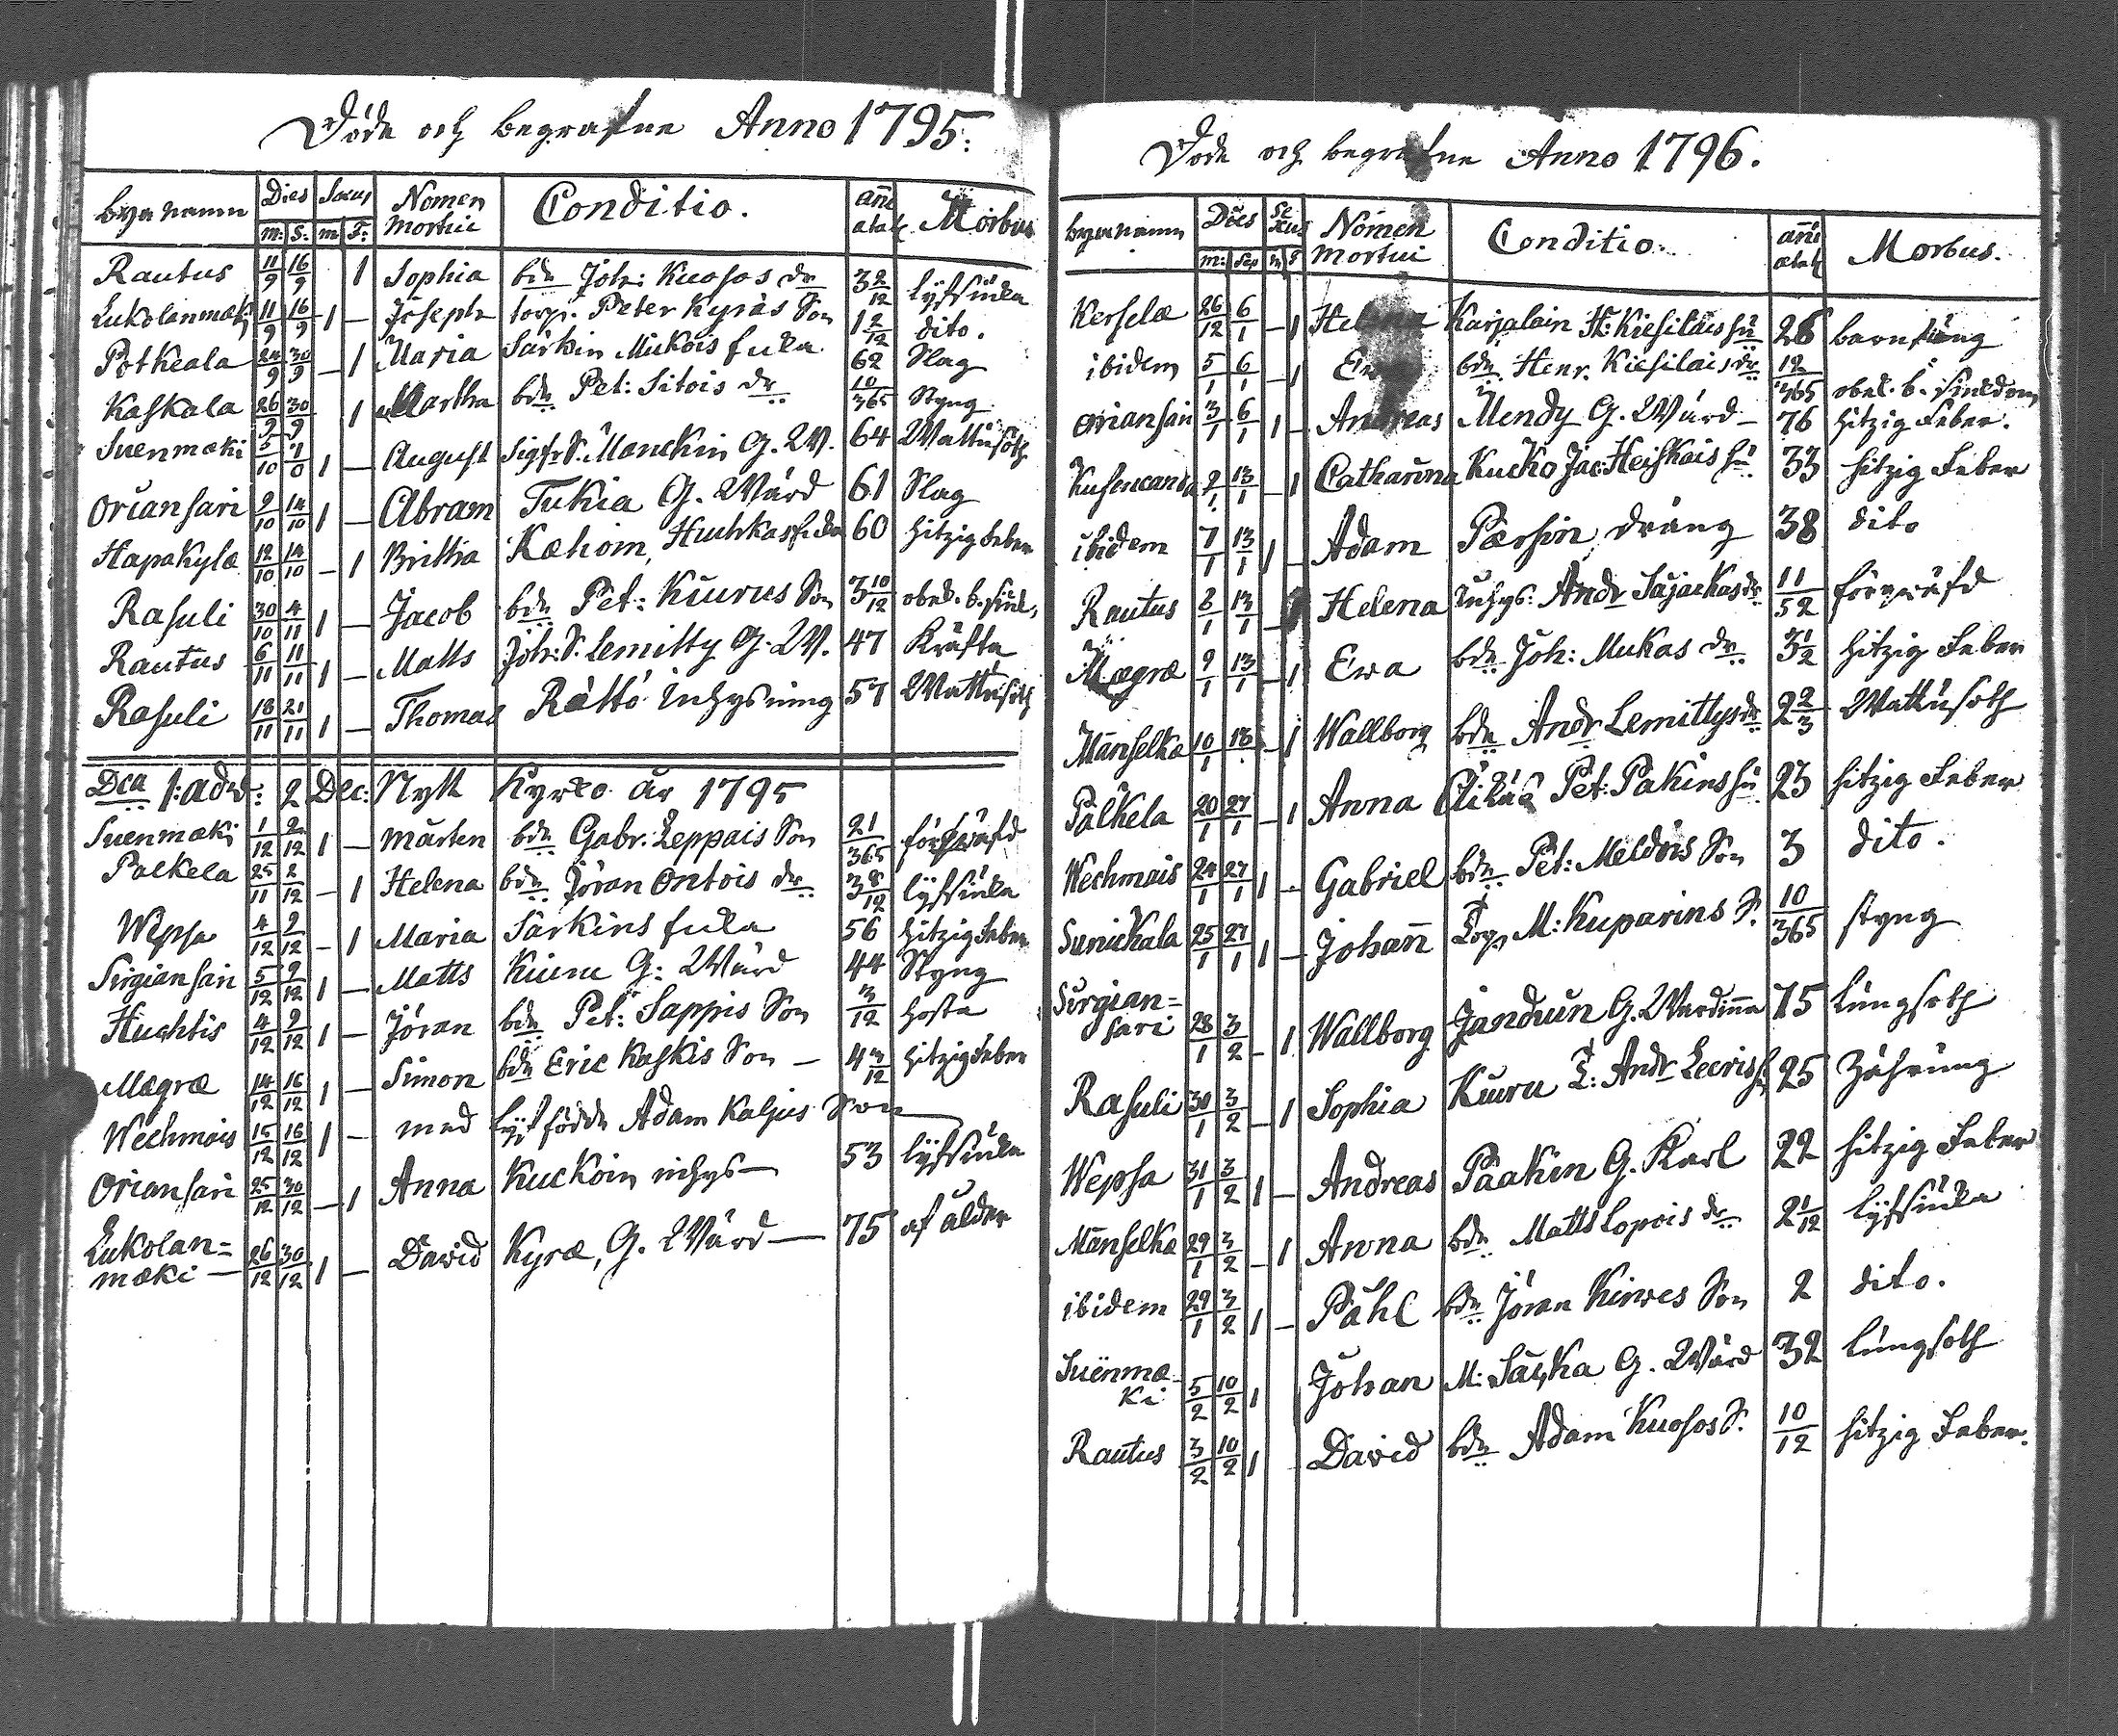 Döde och begrafne Anno 1795.
bya namn Dies Sexus Nomen Conditio. añi Morbus
m: S: m F: mortui ætat.
Rautus 11/9 16/9 1 Sophia bdn Joh: Kuosos dr 3 2/12 lyfsiuka
Lukolanmæki 11/9 16/9 1 — Joseph torp. Peter Kyräs Son 1 2/12 dito.
Potkeala 24/9 30/9 — 1 Maria Särkin Mikois Enka 62 Slag
Kaskala 26/9 30/9 1 Martha bdn Pet: Sitois dr 10/365 Styng
Suenmæki 5/10 7/10 1 — August Sigfr S. Manckin G. W. 64 Wattusoth
Oriansari 9/10 14/10 1 — Abram Tukia G. Wärd 61 Slag
Hapakylæ 12/10 14/10 — 1 Brittha Kæhoin, Huuhkas Enka 60 hitzig Feber
Rasuli 30/10 4/11 1 — Jacob bdn Pet: Kiurus Son 3 10/12 obek. b. siuk,
Rautus 6/11 11/11 1 — Matts Joh: S. Lemitty G. W. 47 Kräfta
Rasuli 18/11 21/11 1 — Thomas Rättö Inhysning 57 Wattusoth
Dca 1: adv: 2 Dec: Nytt Kyrko år 1795
Suenmæki 1/12 2/12 1 — Mårten bdn Gabr. Leppäis Son 21/365 förqwäfd
Palkela 25/11 2/12 — 1 Helena bdn Jöran Ontois dr 3 8/12 lyfsiuka
Wepsa 4/12 9/12 — 1 Maria Särkins Enka 56 hitzig Feber
Sirgiansari 5/12 9/12 1 — Matts Kiuru G: Wärd 44 Styng
Huuhtis 4/12 9/12 1 — Jöran bdn Pet: Sappis Son 3/12 hosta
Mægræ 14/12 16/12 1 — Simon bdn Eric Kaskis Son — 4 3/12 hitzig Feber
Wechmais 15/12 16/12 1 — med lijf födde Adam Kaljus Son
Oriansari 25/12 30/12 — 1 Anna Kuckoin inhys — 53 lyfsiuka
Lukolan=
mæki — 26/12 30/12 1 — David Kyræ, G. Wärd — 75 af ålder
Döde och begrafne Anno 1796.
byanamn Dies Sexus Nomen Conditio. añi Morbus.
m: Sep m F mortui ætat
Kerselæ 26/12 6/1 — 1 Helena Karjalain H: Kiesiläis hu 26 barnsäng
ibidem 5/1 6/1 — 1 Eva bdn Henr. Kiesiläis dr 12/365 obek. b. siukdom
Oriansari 3/1 6/1 1 — Andreas Mendy G. Wärd — 76 hitzig Feber.
2/1 13/1 — 1 Catharina Kucko Jac: Heiskais hu 33 hitzig Feber
ibidem 7/1 13/1 1 — Adam Pærsin dräng 38 dito
Rautus 8/1 13/1 — 1 Helena Inhys: Andr Säjäckas dr 11/52 förqwäfd
Mægræ 9/1 13/1 — 1 Ewa bdn Joh: Mukas dr 3 1/2 hitzig Feber
Mänselkæ 10/1 13 — 1 Wallborg bdn Andr Lemittys dr 2 2/3 Wattusoth
Palkela 20/1 27/1 — 1 Anna Pet: Pakins hu 23 hitzig Feber
Wechmais 24/1 27/1 1 — Gabriel bdn Pet: Meldois Son 3 dito.
Sunickala 25/1 27/1 1 — Johañ Torp M: Kuparins S. 10/365 styng
Sirgian=
sari 28/1 3/2 — 1 Wallborg Jandiun G. Wärdinna 75 lungsoth
Rasuli 30/1 3/2 — 1 Sophia Kiuru T: Andr 25 Zährung
Wepsa 31/1 3/2 1 — Andreas Paakin G. Karl 22 hitzig Feber
Mänselkæ 29/1 3/2 — 1 Anna bdn Matts Lopois dr 2 1/12 lyfsiuka
ibidem 29/1 3/2 1 — Påhl bdn Jöran Kirwes Son 2 dito.
Suenmæ-
ki 5/2 10/2 1 Johan M: G. Wärd 32 lungsoth
Rautus 3/2 10/2 1 David bdn Adam Kuosos S. 10/12 hitzig Feber.